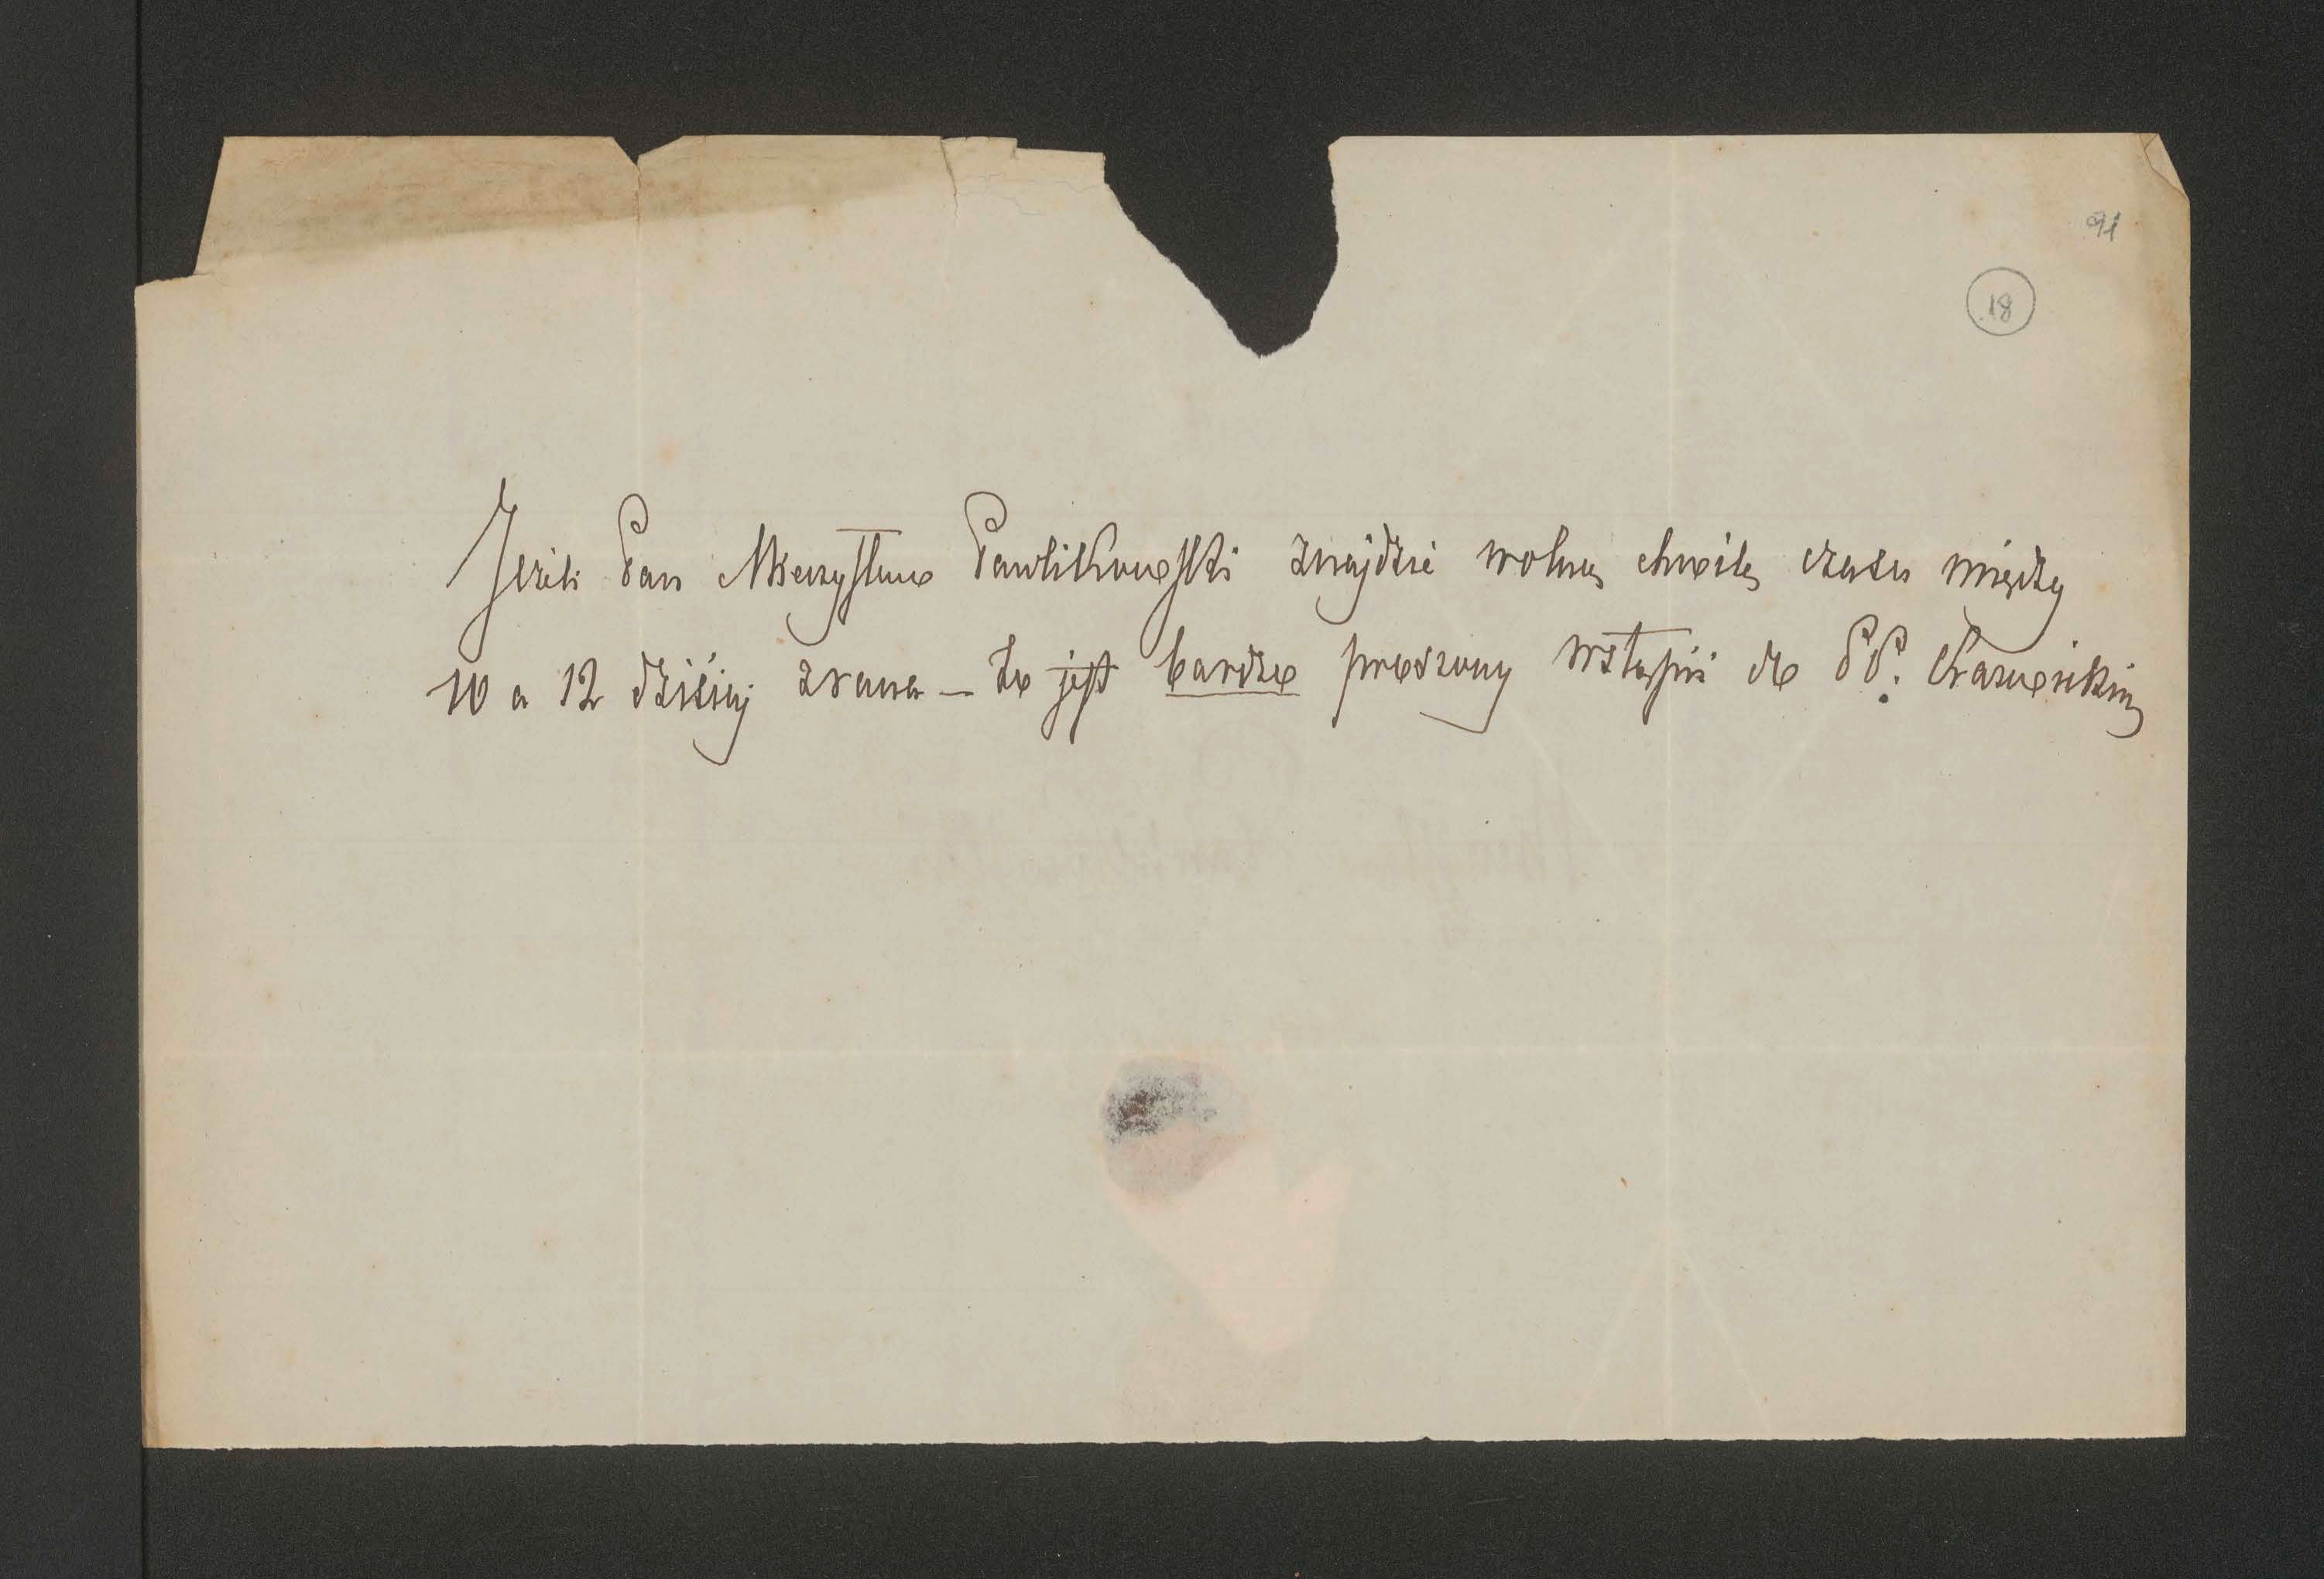 91
18
Jeżeli Pan Mieczysław Pawlikowski znajdzie wolną chwilę czasu między
10 a 12 dzisiaj z rana — to jest bardzo proszony wstąpić do PP.